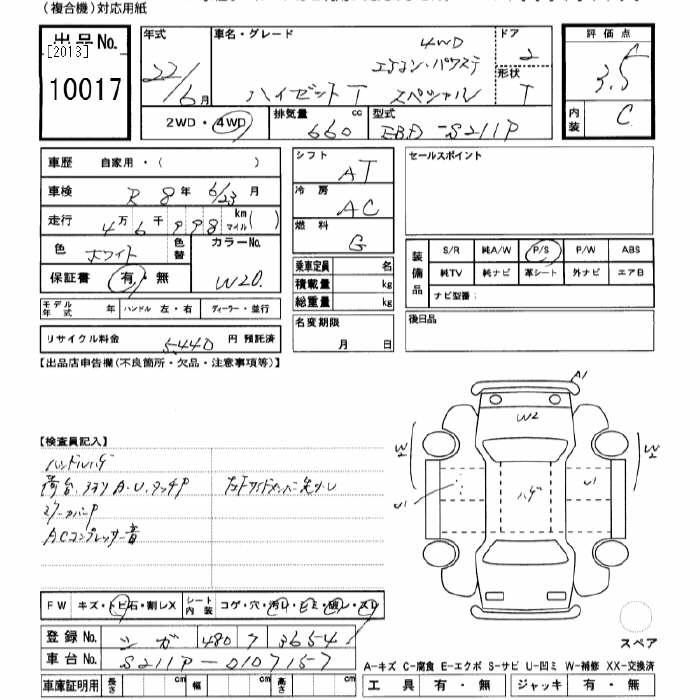 (複合機)対応用紙
出品No.
[2013]
10017
年式
22/6月
車名・グレード
4WD
エアコン・パワステ
ハイゼットT スペシャル
ドア
2
形状
T
評価点
3.5
内装
C
2WD・4WD
排気量
660 cc
型式
EBD-S211P
車歴 自家用・( )
車検 R 8年 6/23月
走行 4万6千998 km マイル( )
色 ホワイト 色替
カラーNo.
W20.
保証書 有・無
モデル年式 年 ハンドル 左・右 ディーラー・並行
リサイクル料金 5,440 円 預託済
シフト AT
冷房 AC
燃料 G
乗車定員 名
積載量 kg
総重量 kg
名変期限
月 日
セールスポイント
装備品
S/R 純A/W P/S P/W ABS
純TV 純ナビ 革シート 外ナビ エアB
ナビ型番:
後日品
【出品店申告欄(不良箇所・欠品・注意事項等)】
【検査員記入】
ハンドルハゲ
荷台、アオリA.U.タッチP
ミラーカバーP
ACコンプレッサー音
左右サイドメンバー先少し
A1
W2
W2
W2
U1
ハゲ
U1
スペア
FW キズ・トビ石・割レX
シート内装 コゲ・穴・汚レ・シミ・破レ・スレ
登録No. シガ 480 ク 3654
車台No. S211P-0107157
車庫証明用 長さ cm 幅 cm 高さ cm
A-キズ C-腐食 E-エクボ S-サビ U-凹ミ W-補修 XX-交換済
工具 有・無 ジャッキ 有・無